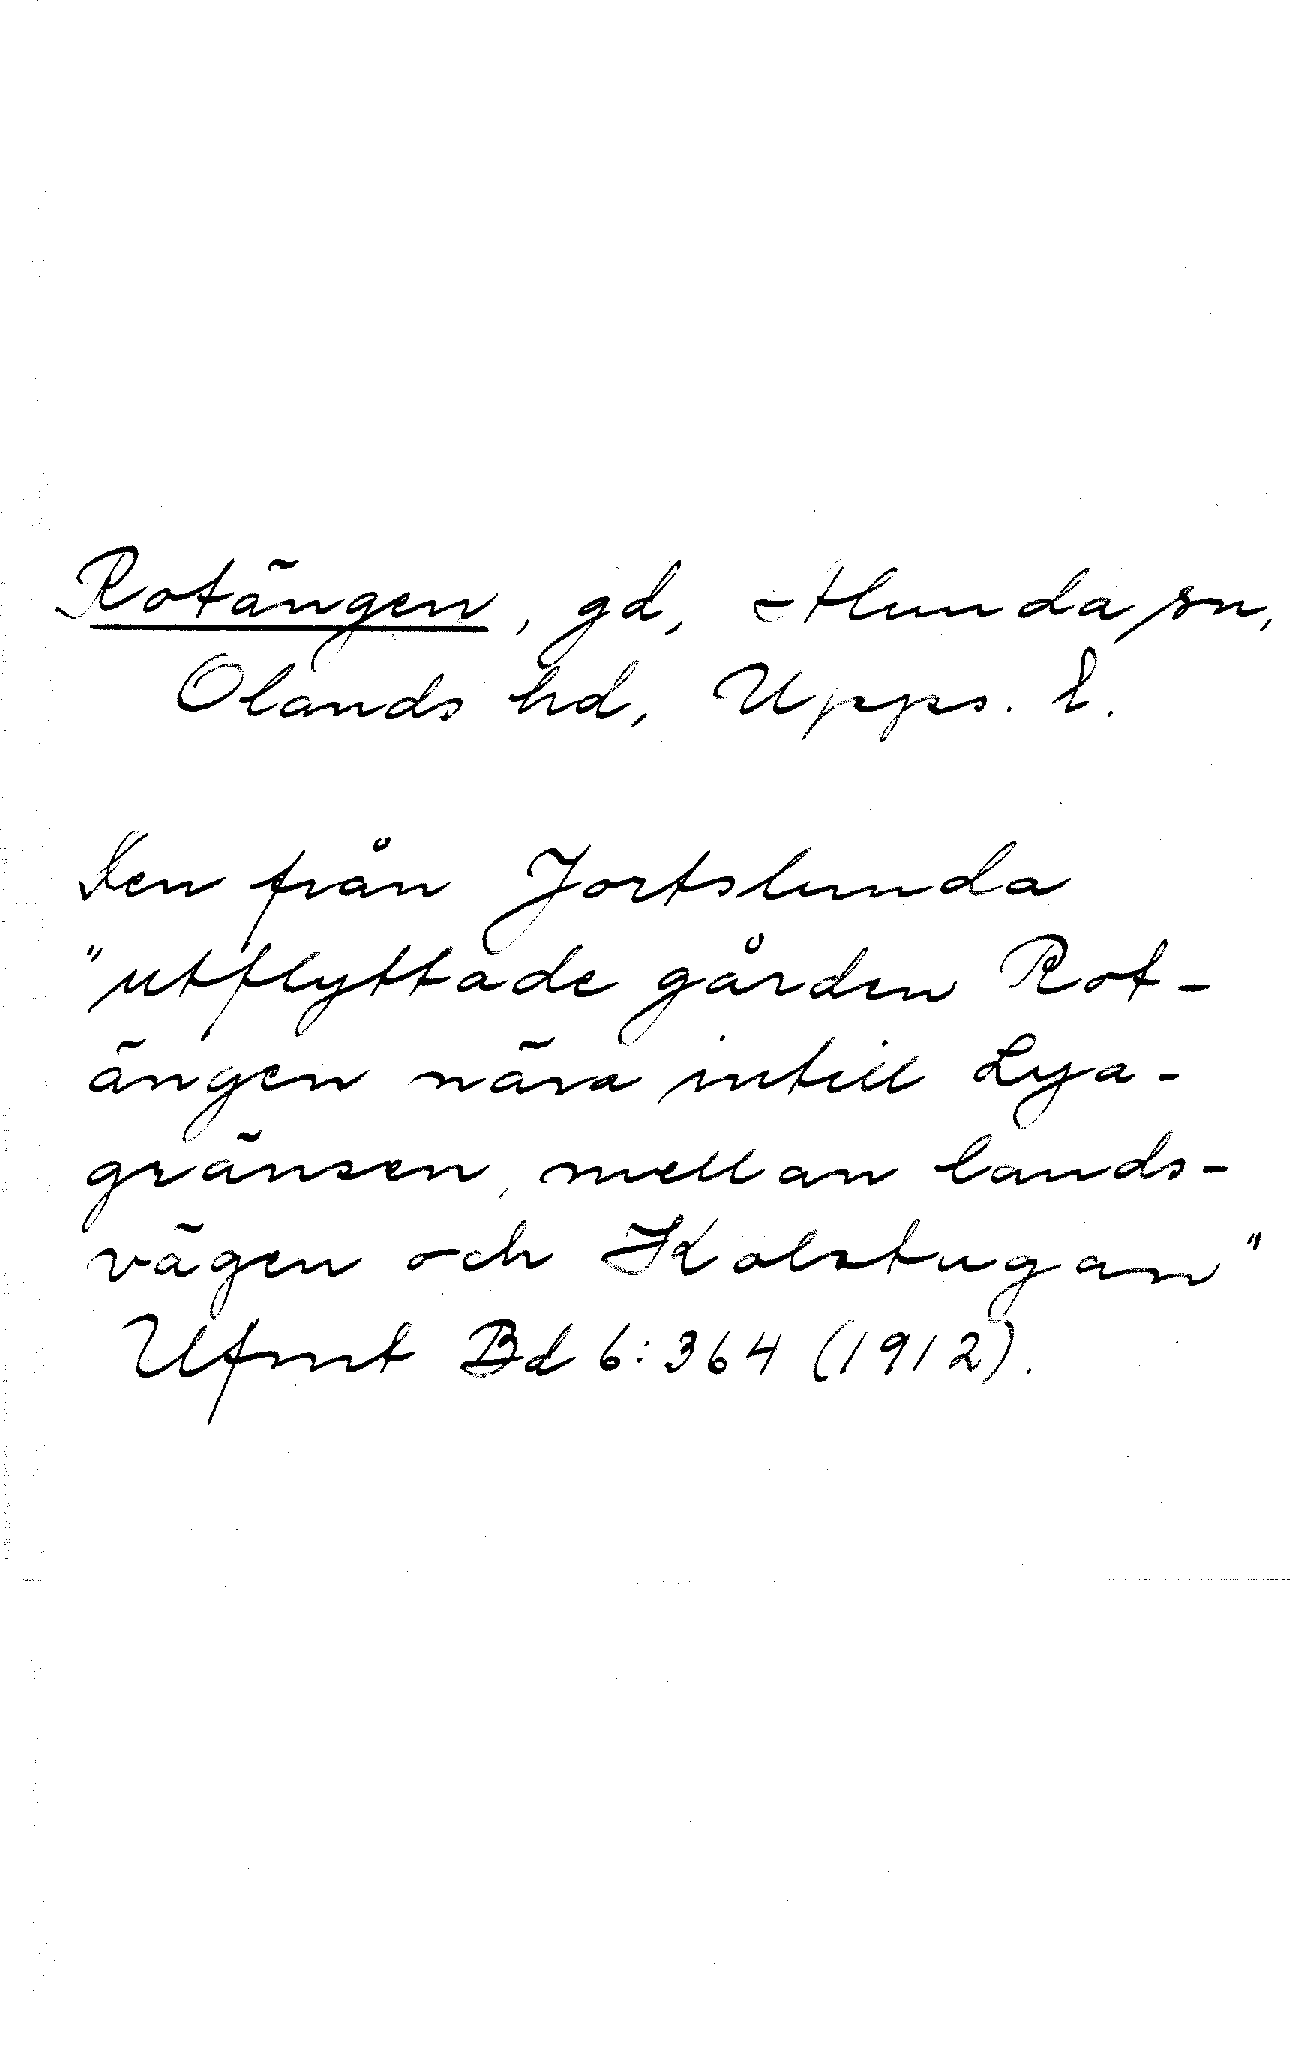 Rotängen, gd, Alunda sn,
Olands hd, Upps. l.
Den från Jortslunda
"utflyttade gården Rot-
ängen nära intill Lya-
gränsen, mellan lands-
vägen och Kolstugan"
Ufmt Bd 6:364 (1912).